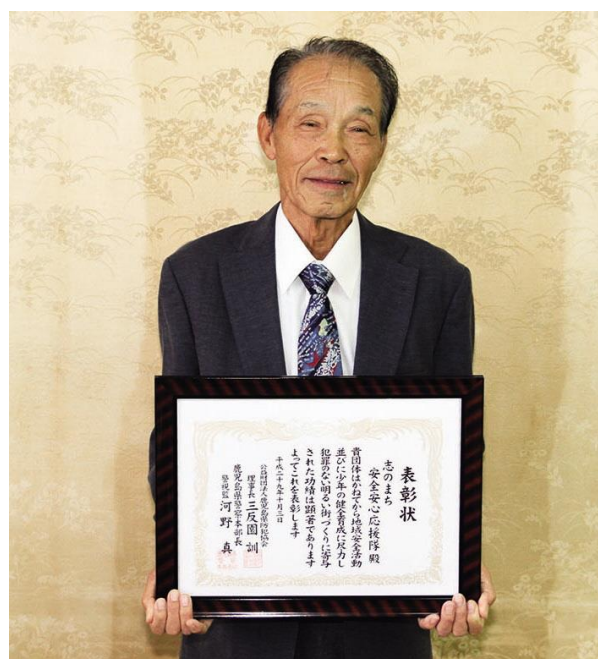 表彰状
志のまち
安全安心応援隊殿
貴団体はかねてから地域安全活動
並びに少年の健全育成に尽力し
犯罪のない明るい街づくりに寄与
された功績は顕著であります
よってこれを表彰します
平成二十九年十月三日
公益財団法人鹿児島県防犯協会
理事長 三反園 訓
鹿児島県警察本部長
警視監 河野 真